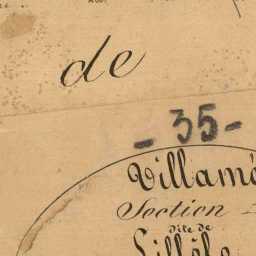 de
- 35 -
Villamé
Section
dite de